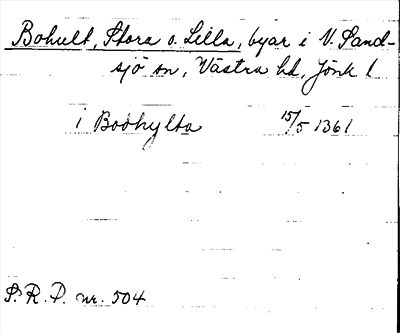 Bohult, Stora o. Lilla, byar i V. Sand-
sjö sn, Västra hd, Jönk l
i Boohylta 15/5 1361
S. R. P. nr. 504